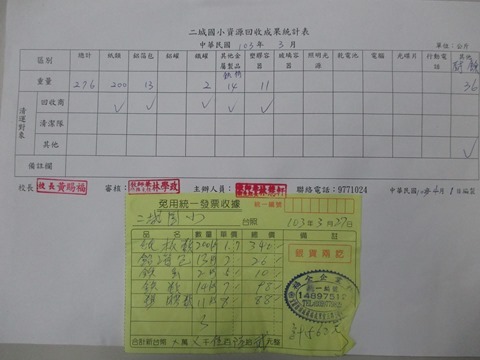 二城國小資源回收成果統計表
中華民國 103年 3月
單位：公斤
區別 總計 紙類 鋁箔包 鋁罐 鐵罐 其他金屬製品 塑膠容器 玻璃容器 照明光源 乾電池 電腦 光碟片 行動電話 其他
重量 276 200 13 2 14 11 36
清運對象
回收商 ✓ ✓ ✓ ✓ ✓
清潔隊
其他 ✓
備註欄
校長 校長黃賜福 審核： 林學政 主辦人員： 聯絡電話：9771024 中華民國103年4月1日製表
免用統一發票收據
統一編號
二城國小 台照 103年3月27日
品名 數量 單價 總價 備註
200 1.7 340
13 2 26
2 5 10
鐵 14 7 98
塑膠 11 8 88
銀貨兩訖
統一編號
14897517
計563元
合計新台幣